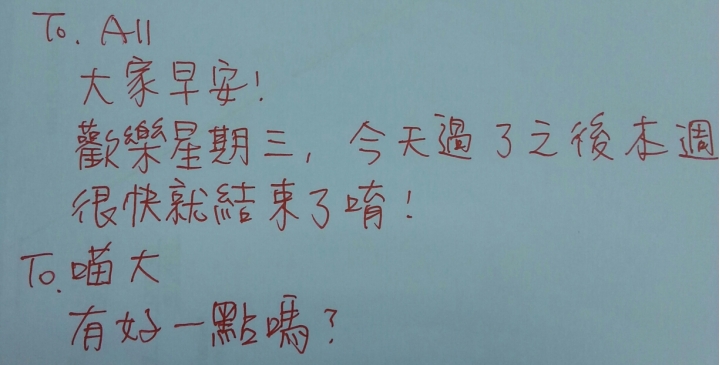 To. All
大家早安!
歡樂星期三, 今天過了之後本週
很快就結束了唷!
To. 喵大
有好一點嗎?